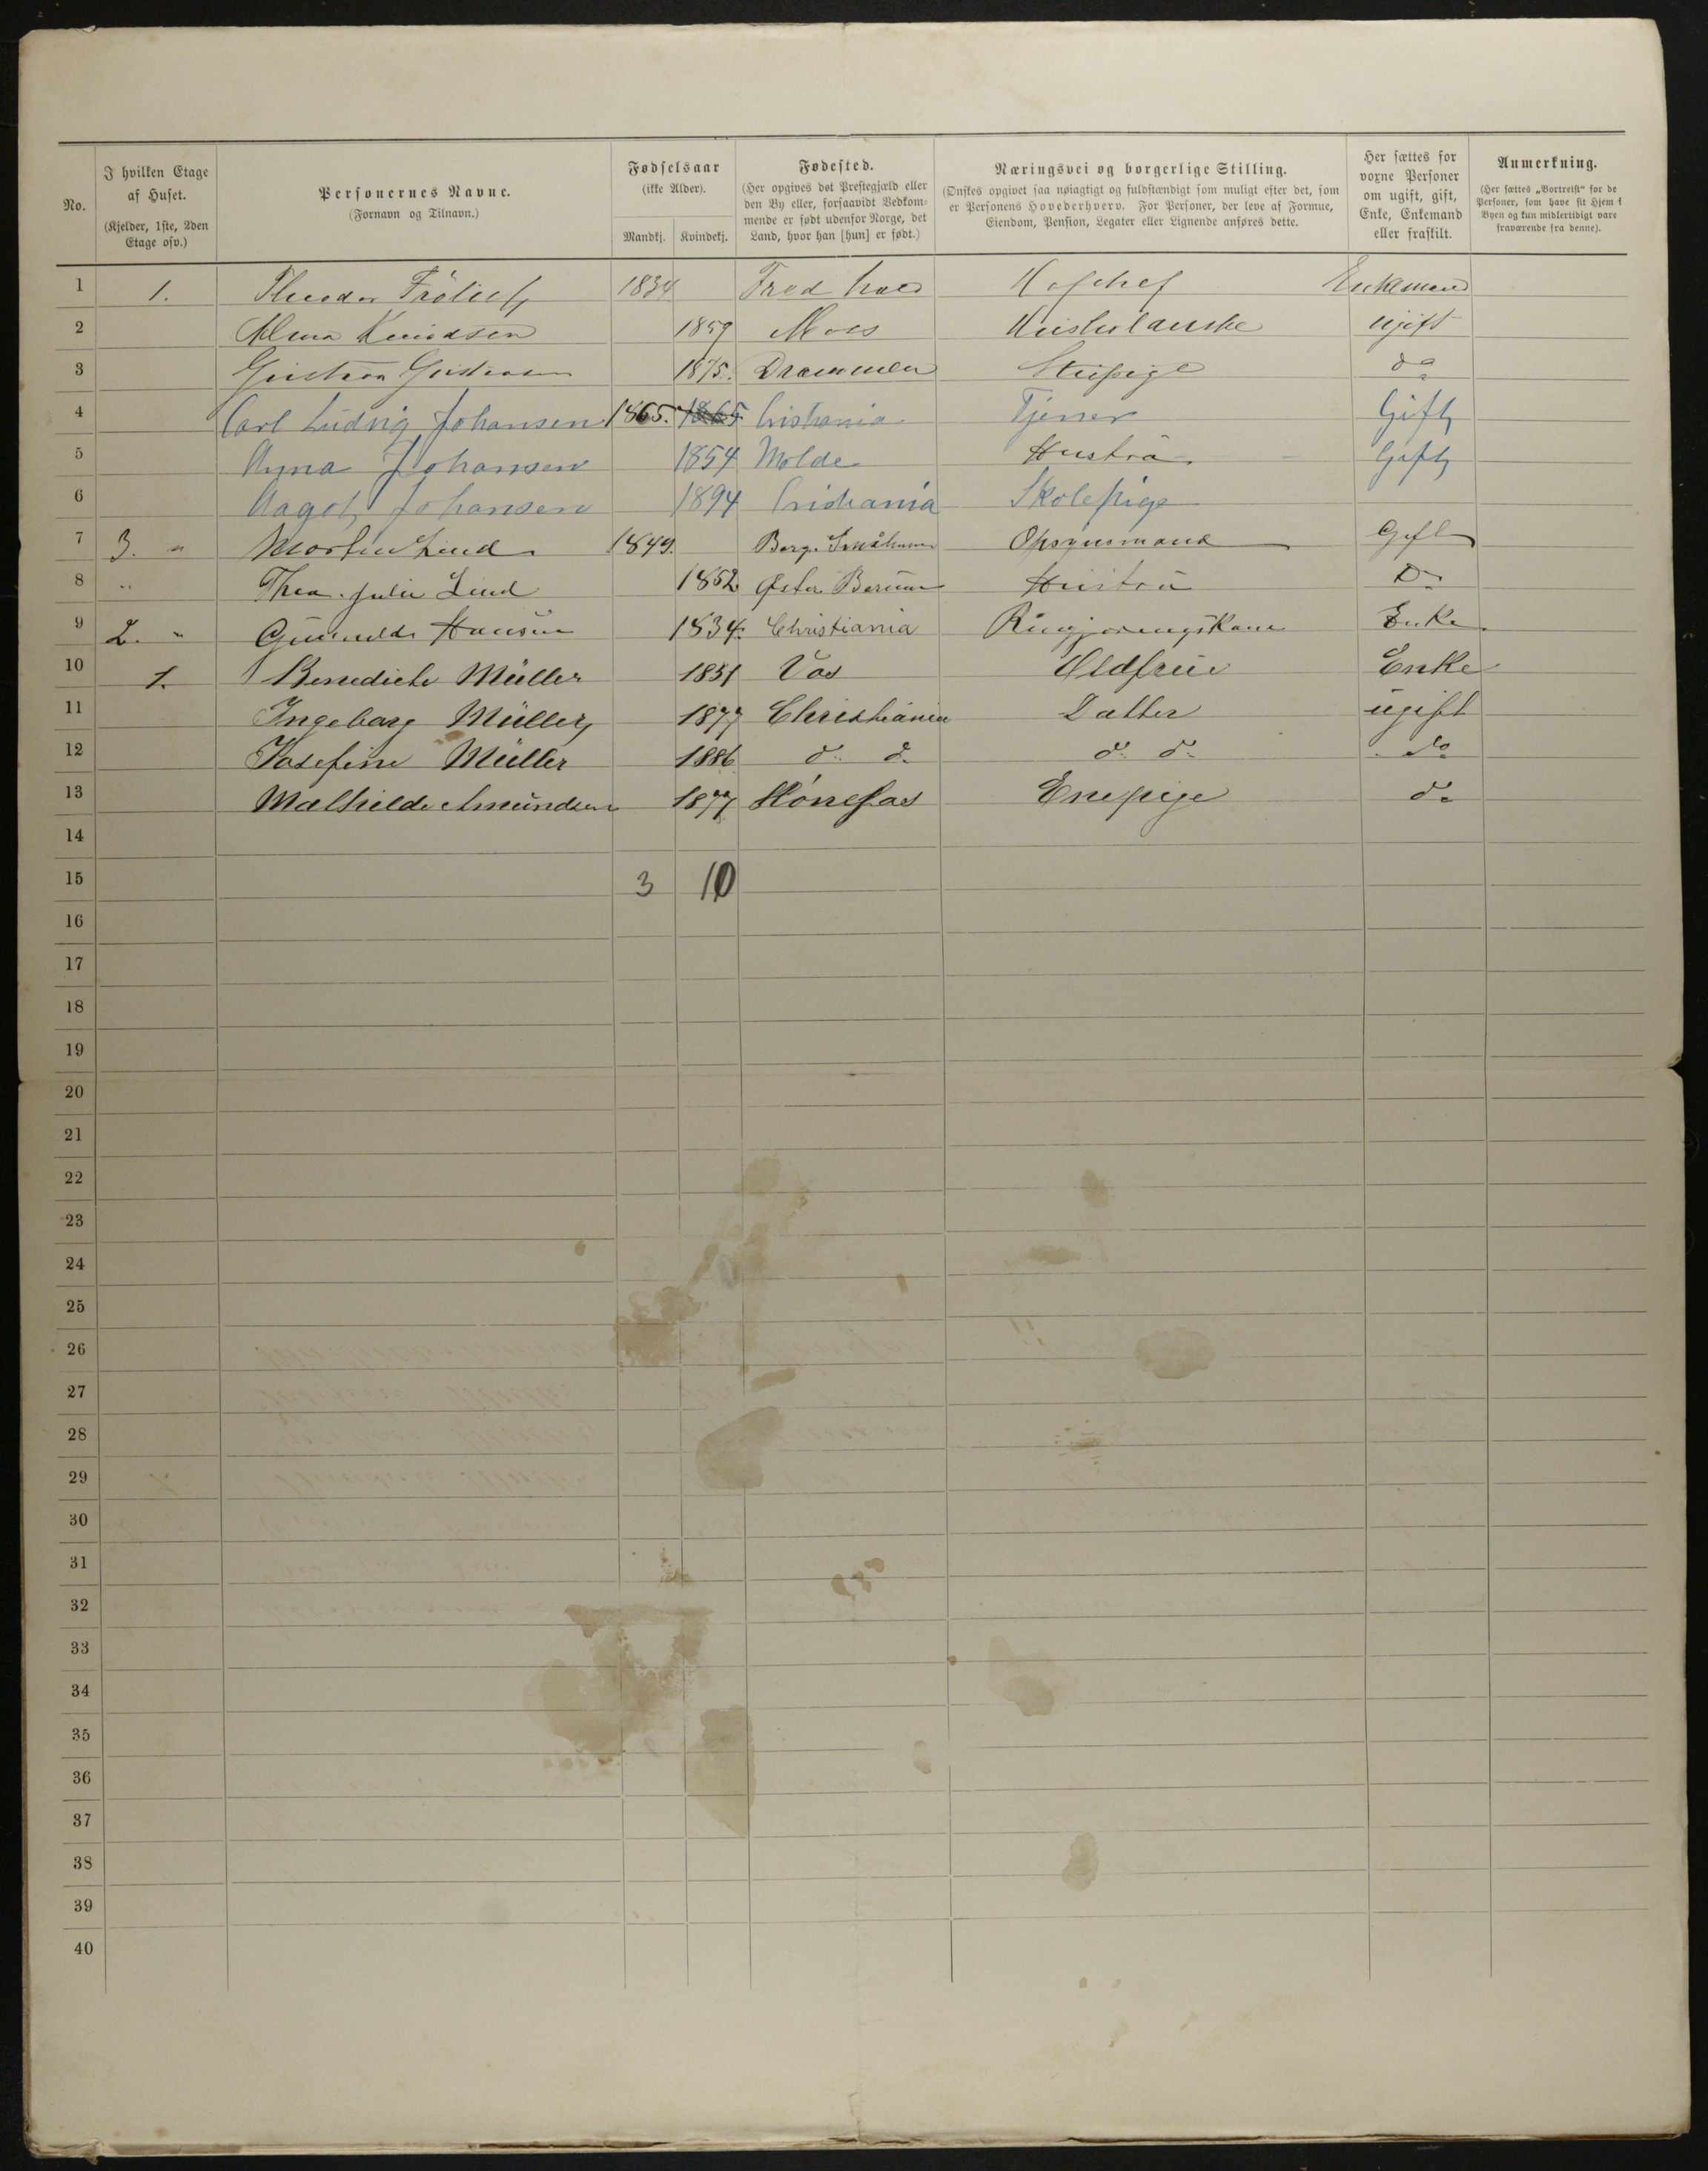 No.
I hvilken Etage af Huset.
(Kjelder, 1ste, 2den Etage osv.)
Personernes Navne.
(Fornavn og Tilnavn.)
Fødselsaar
(ikke Alder).
Mandkj. Kvindekj.
Fødested.
(Her opgives det Præstegjæld eller den By eller, forsaavidt Vedkommende er født udenfor Norge, det Land, hvor han [hun] er født.)
Næringsvei og borgerlige Stilling.
(Ønskes opgivet saa nøiagtigt og fuldstændigt som muligt efter det, som er Personens Hovederhverv. For Personer, der leve af Formue, Eiendom, Pension, Legater eller Lignende anføres dette.
Her sættes for voxne Personer om ugift, gift, Enke, Enkemand eller fraskilt.
Anmerkning.
(Her sættes „Bortreist“ for de Personer, som have sit Hjem i Byen og kun midlertidigt vare fraværende fra denne).
1 1. Theodor Frölich 1834 Fredhald Hofchef Enkemand
2 Alma Knudsen 1859 Moss ugift
3 1875. Drammen Stupige do
4 Carl Ludvig Johansen 1865. 1865. Cristiania Tjener Gift
5 Agna Johansen 1854 Molde Hustru Gift
6 Aagot Johansen 1894 Cristiania Skolepige
7 3. " Morten Lind 1849. Opsynsmand Gift
8 " Thea Julie Lind 1852 Øster Berum Hustru Do
9 2. " Gunnelde Hansen 1834. Christiania Rengjøringskone Enke
10 1. Benedicte Müller 1851 Vos Oldfrue Enke
11 Ingeborg Müller 1877 Christiania Datter ugift
12 Josefine Müller 1886 do do do do do
13 Mathilde Amundsen 1877 Hönefos Enepige do
14
15 3 10
16
17
18
19
20
21
22
23
24
25
26
27
28
29
30
31
32
33
34
35
36
37
38
39
40